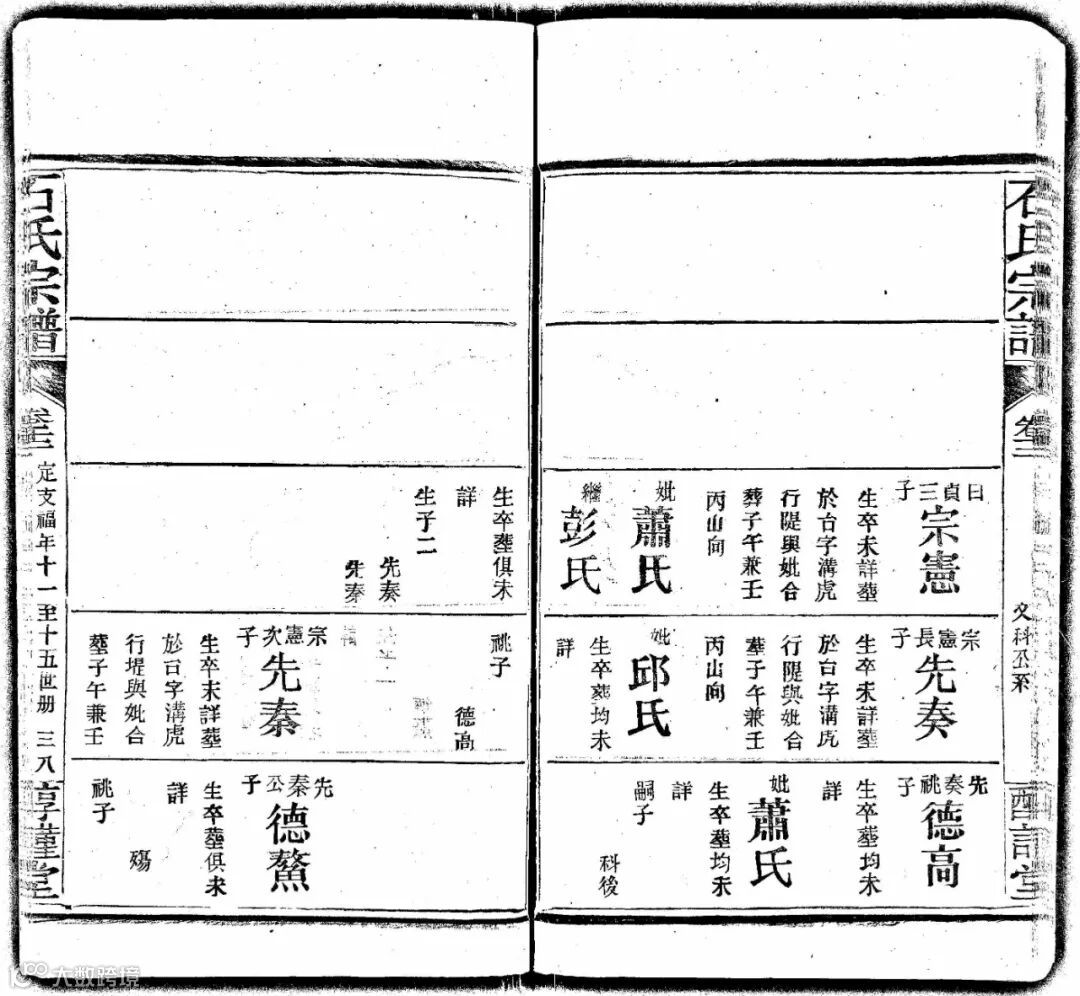 石氏宗譜
卷三
文科公系
日貞三子
宗憲
生卒未詳塟
於台字溝虎
行隄與妣合
葬子午兼壬
丙山向
妣
蕭氏
繼
彭氏
生卒塟俱未
詳
生子二
先奏
先秦
宗憲長子
先奏
生卒未詳塟
於台字溝虎
行隄與妣合
塟子午兼壬
丙山向
妣
邱氏
生卒塟均未
詳
祧子
德高
宗憲次子
先秦
生卒未詳塟
於台字溝虎
行堤與妣合
塟子午兼壬
先奏祧子
德高
生卒塟均未
詳
妣
蕭氏
生卒塟均未
詳
嗣子
科後
先秦公子
德鰲
生卒塟俱未
詳
殤
祧子
石氏宗譜
卷三
定支福年十一至十五世册
三八
大数跨境